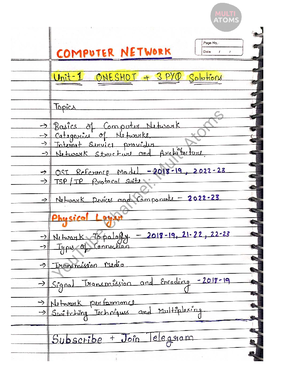 MULTI
ATOMS
Page No.
Date
COMPUTER NETWORK
Unit-1 ONESHOT + 3 PYQ Solutions
Topics
→ Basics of Computer Network
→ Categories of Networks
→ Internet Service provider
→ Network Structure and Architecture,
→ OSI Reference Model - 2018-19, 2022-23
→ TSP/IP Protocol Suite
→ Network Devices and Components - 2022-23
Physical Layer
→ Network Topology - 2018-19, 21-22, 22-23
→ Types of Connection
→ Transmission Media
→ Signal Transmission and Encoding - 2018-19
→ Network performance
→ Switching Techniques and Multiplexing
Subscribe + Join Telegram
YouTube Channel: Multi Atoms